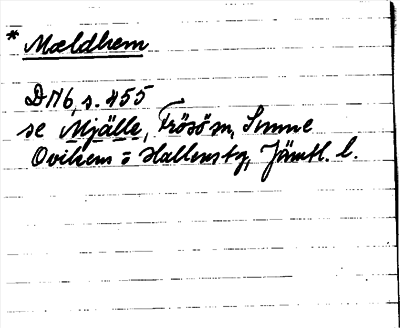 * Mældhem
DN 6, s. 455
se Mjälle, Frösö sn, Sunne
Ovikens o Hallens tg, Jämtl. l.